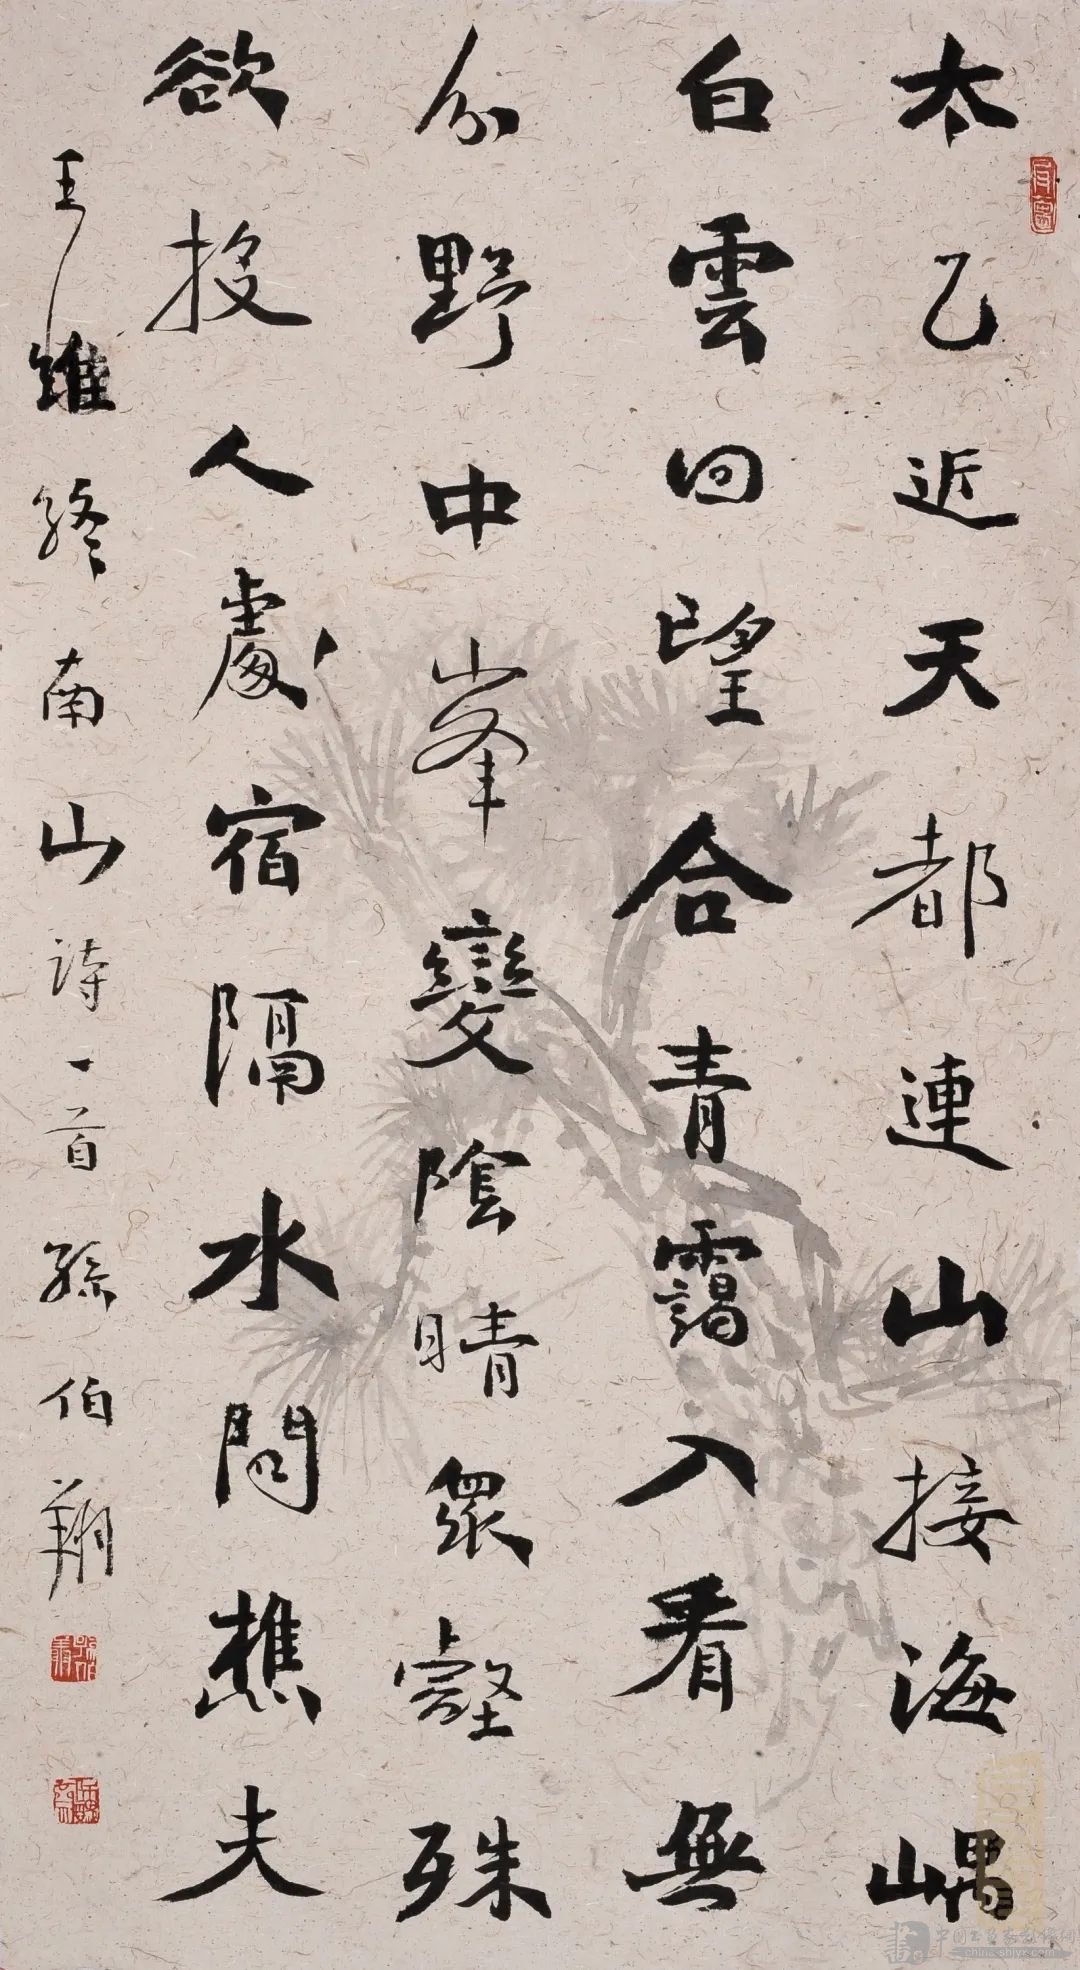 太乙近天都連山接海嵎
白雲回望合青靄入看無
分野中峯變陰晴眾壑殊
欲投人處宿隔水問樵夫
王維終南山詩一首孫伯翔